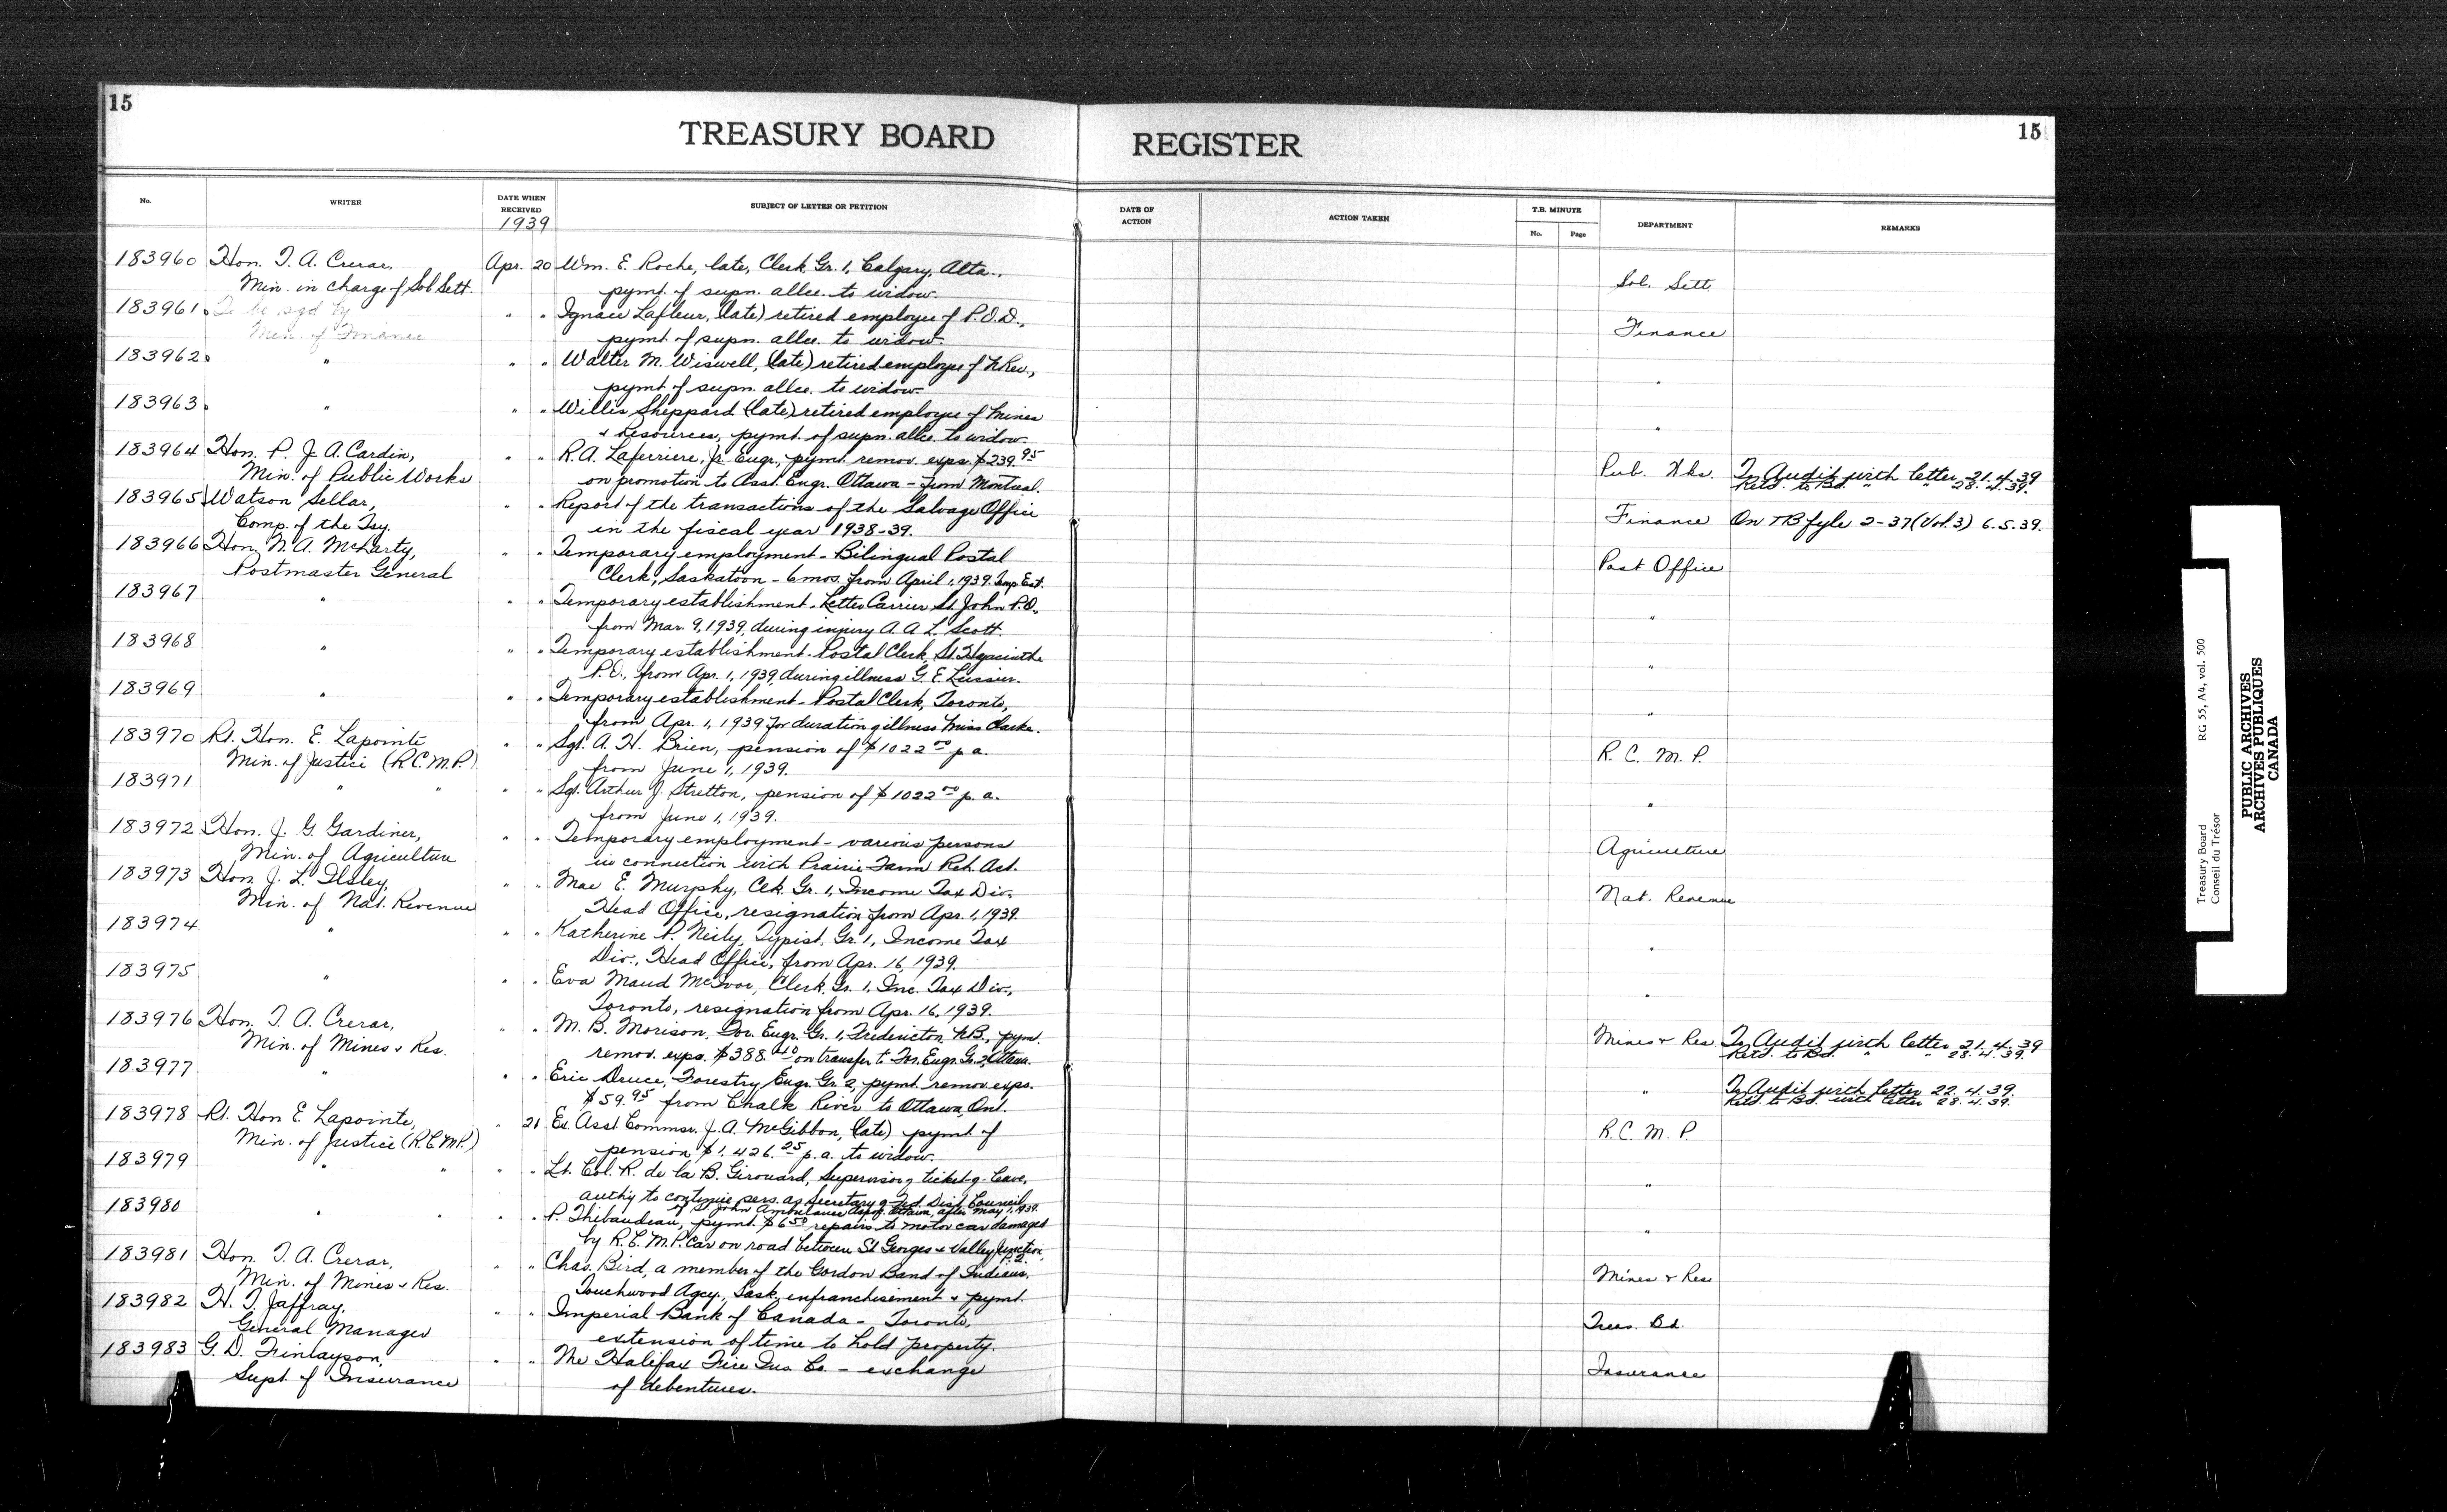 15
TREASURY BOARD REGISTER
15
No. WRITER DATE WHEN RECEIVED SUBJECT OF LETTER OR PETITION DATE OF ACTION ACTION TAKEN T.B. MINUTE No. Page DEPARTMENT REMARKS
1939
183960 Hon. T. A. Crerar, Apr. 20 Wm. E. Roche, late, Clerk, Gr. 1, Calgary, Alta.,
Min. in charge of Sol Sett. pymt. of supn. allce. to widow. Sol. Sett.
183961 To be sgd by " " Ignace Lafleur, (late) retired employee of P.O.D.,
Min. of Finance pymt. of supn. allce. to widow. Finance
183962 " " " Walter M. Wiswell, (late) retired employee of N. Rev.,
pymt. of supn. allce. to widow. "
183963 " " " Willis Sheppard (late) retired employee of Mines
& Resources, pymt. of supn. allce. to widow. "
183964 Hon. P. J. A. Cardin, " " R. A. Laferriere, Jr. Engr., pymt. remov. exps. $239.95
Min. of Public Works on promotion to Asst. Engr. Ottawa - from Montreal. Pub. Wks. To Audit with letter 21.4.39
Retd. to Bd. " " 28.4.39.
183965 Watson Sellar, " " Report of the transactions of the Salvage Office
Comp. of the Tsy. in the fiscal year 1938-39. Finance On TB fyle 2-37 (Vol. 3) 6.5.39.
183966 Hon. N. A. McLarty, " " Temporary employment - Bilingual Postal
Postmaster General Clerk, Saskatoon - 6 mos. from April 1, 1939. Temp Est. Post Office
183967 " " " Temporary establishment - Letter Carrier St. John P.O.
from Mar. 9, 1939, during injury A. A. L. Scott. "
183968 " " " Temporary establishment - Postal Clerk, St. Hyacinthe
P.O., from Apr. 1, 1939, during illness G. E. Lussier. "
183969 " " " Temporary establishment - Postal Clerk, Toronto,
from Apr. 1, 1939 for duration illness Miss Clarke. "
183970 Rt. Hon. E. Lapointe " " Sgt. A. H. Brien, pension of $1022.00 p.a.
Min. of Justice (R.C.M.P.) from June 1, 1939. R. C. M. P.
183971 " " " " Sgt. Arthur J. Stretton, pension of $1022.00 p.a.
from June 1, 1939. "
183972 Hon. J. G. Gardiner, " " Temporary employment - various persons
Min. of Agriculture in connection with Prairie Farm Reh. Act. Agriculture
183973 Hon. J. L. Ilsley, " " Mae E. Murphy, Clk. Gr. 1, Income Tax Div.
Min. of Nat. Revenue Head Office, resignation from Apr. 1, 1939. Nat. Revenue
183974 " " " Katherine P. Neily, Typist, Gr. 1, Income Tax
Div., Head Office, from Apr. 16, 1939. "
183975 " " " Eva Maud McIvor, Clerk, Gr. 1, Inc. Tax Div.,
Toronto, resignation from Apr. 16, 1939. "
183976 Hon. T. A. Crerar, " " M. B. Morison, For. Engr. Gr. 1, Fredericton N.B., pymt.
Min. of Mines & Res. remov. exps. $388.40 on transfer to For. Engr. Gr. 2, Ottawa. Mines & Res. To Audit with letter 21.4.39
Retd. to Bd. " " 28.4.39.
183977 " " " Eric Druce, Forestry Engr. Gr. 2, pymt. remov. exps.
$59.95 from Chalk River to Ottawa, Ont. " To Audit with letter 22.4.39.
Retd. to Bd. with letter 28.4.39.
183978 Rt. Hon E. Lapointe, " 21 Ex. Asst. Commsr. J. A. McGibbon, (late) pymt. of
Min. of Justice (R.C.M.P.) pension $1,426.25 p.a. to widow. R. C. M. P.
183979 " " " " Lt. Col. R. de la B. Girouard, Supervisor, ticket-of-leave,
authy to continue pers. as Secretary of Fed. Dist. Council
of St. John Ambulance Ass'n. Ottawa, after May 1, 1939. "
183980 " " " P. Thibaudeau, pymt. $6.50 repairs to motor car damaged
by R.C.M.P. Car on road between St. Georges & Valley Junction, P.Q. "
183981 Hon. T. A. Crerar, " " Chas. Bird, a member of the Gordon Band of Indians,
Min. of Mines & Res. Touchwood Agcy., Sask. enfranchisement & pymt. Mines & Res
183982 H. T. Jaffray, " " Imperial Bank of Canada - Toronto,
General Manager extension of time to hold property. Treas. Bd.
183983 G. D. Finlayson, " " The Halifax Fire Ins. Co. - exchange
Supt. of Insurance of debentures. Insurance
Treasury Board RG 55, A4, vol. 500
Conseil du Trésor
PUBLIC ARCHIVES
ARCHIVES PUBLIQUES
CANADA